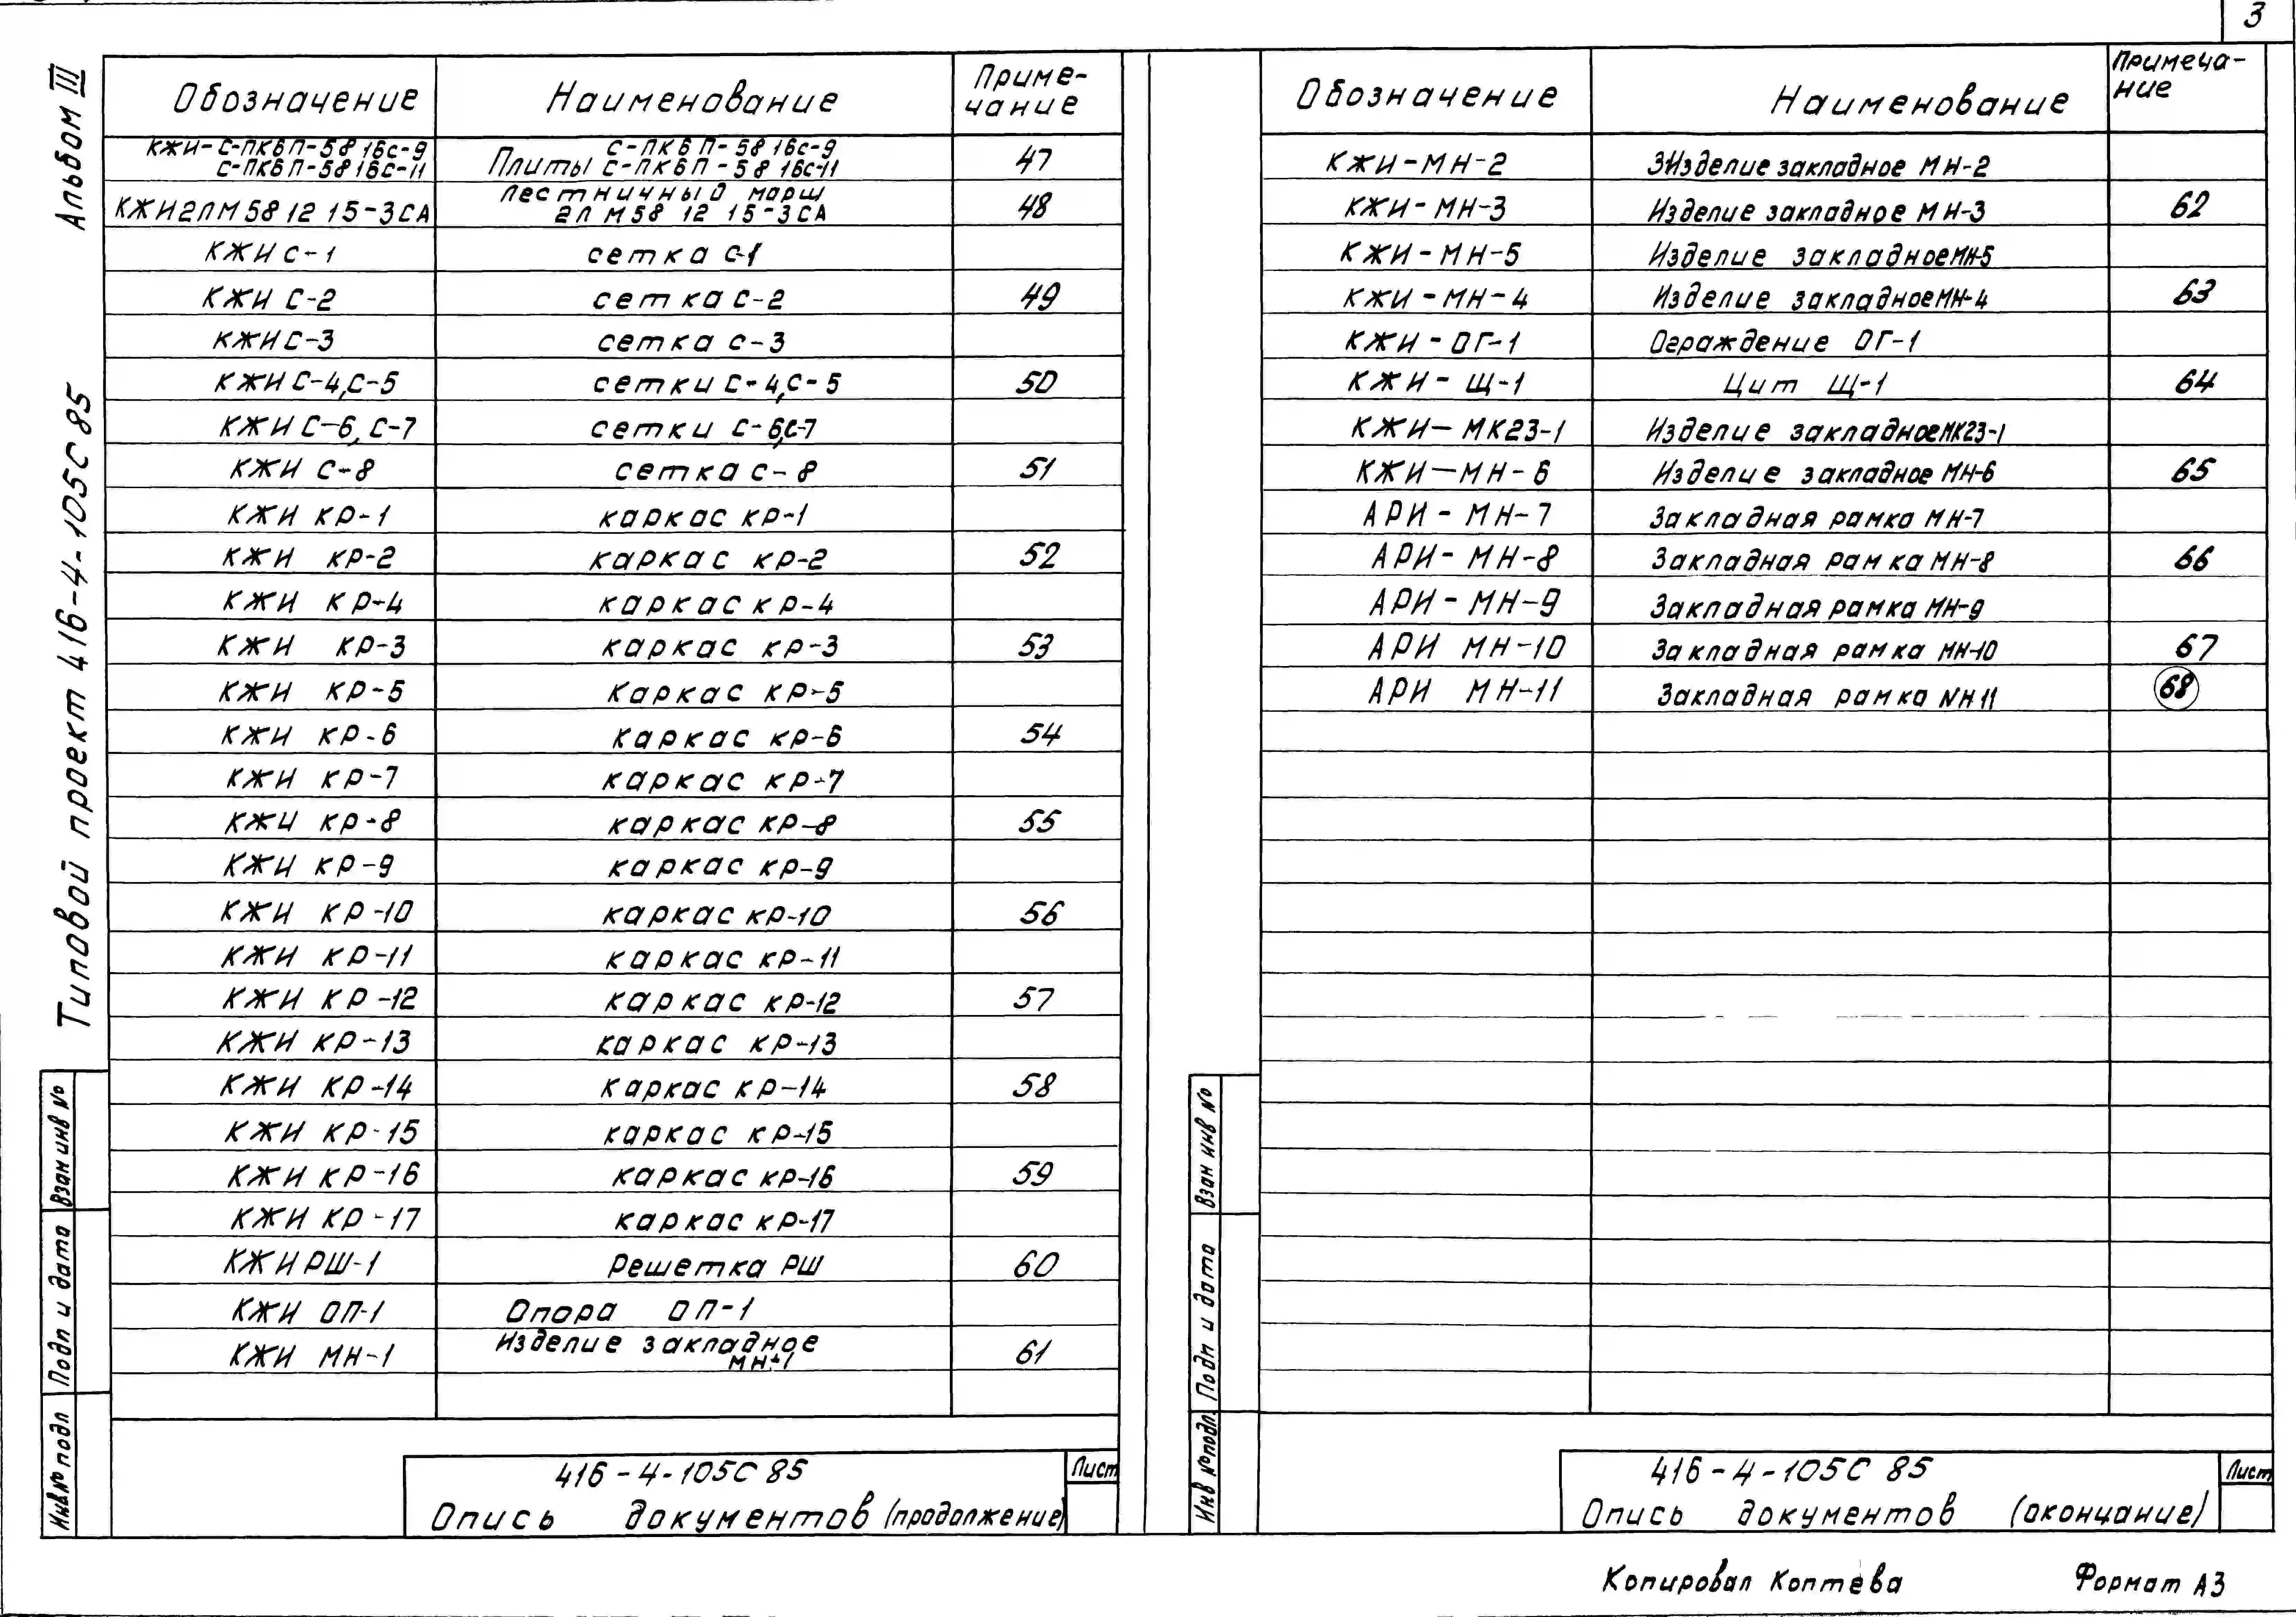 3
Альбом III
Типовой проект 416-4-105С85
Обозначение Наименование Приме-
чание
КЖИ-С-ПК6П-58 16с-9 С-ПК6П-58 16с-9
С-ПК6П-58 16С-11 Плиты С-ПК6П-58 16с-11 47
Лестничный марш
КЖИ2ЛМ58 12 15-3СА 2ЛМ58 12 15-3СА 48
КЖИ С-1 сетка С-1
КЖИ С-2 сетка С-2 49
КЖИ С-3 сетка С-3
КЖИ С-4,С-5 сетки С-4,С-5 50
КЖИ С-6, С-7 сетки С-6,С-7
КЖИ С-8 сетка С-8 51
КЖИ КР-1 каркас КР-1
КЖИ КР-2 каркас КР-2 52
КЖИ КР-4 каркас КР-4
КЖИ КР-3 каркас КР-3 53
КЖИ КР-5 Каркас КР-5
КЖИ КР-6 Каркас КР-6 54
КЖИ КР-7 каркас КР-7
КЖИ КР-8 каркас КР-8 55
КЖИ КР-9 каркас КР-9
КЖИ КР-10 каркас КР-10 56
КЖИ КР-11 каркас КР-11
КЖИ КР-12 каркас КР-12 57
КЖИ КР-13 каркас КР-13
КЖИ КР-14 каркас КР-14 58
КЖИ КР-15 каркас КР-15
КЖИ КР-16 каркас КР-16 59
КЖИ КР-17 каркас КР-17
КЖИ РШ-1 Решетка РШ 60
КЖИ ОП-1 Опора ОП-1
Изделие закладное
КЖИ МН-1 МН-1 61
Взам инв №
Подп и дата
Инв№ подл
416-4-105С 85 Лист
Опись документов (продолжение)
Обозначение Наименование Примеча-
ние
КЖИ-МН-2 ЗИзделие закладное МН-2
КЖИ-МН-3 Изделие закладное МН-3 62
КЖИ-МН-5 Изделие закладное МН-5
КЖИ-МН-4 Изделие закладное МН-4 63
КЖИ-ОГ-1 Ограждение ОГ-1
КЖИ-Щ-1 Цит Щ-1 64
КЖИ-МК23-1 Изделие закладное МК23-1
КЖИ-МН-6 Изделие закладное МН-6 65
АРИ-МН-7 Закладная рамка МН-7
АРИ-МН-8 Закладная рамка МН-8 66
АРИ-МН-9 Закладная рамка МН-9
АРИ МН-10 Закладная рамка МН-10 67
АРИ МН-11 Закладная рамка МН11 68
Взам инв №
Подп и дата
Инв №подл.
416-4-105С 85 Лист
Опись документов (окончание)
Копировал Коптева Формат А3